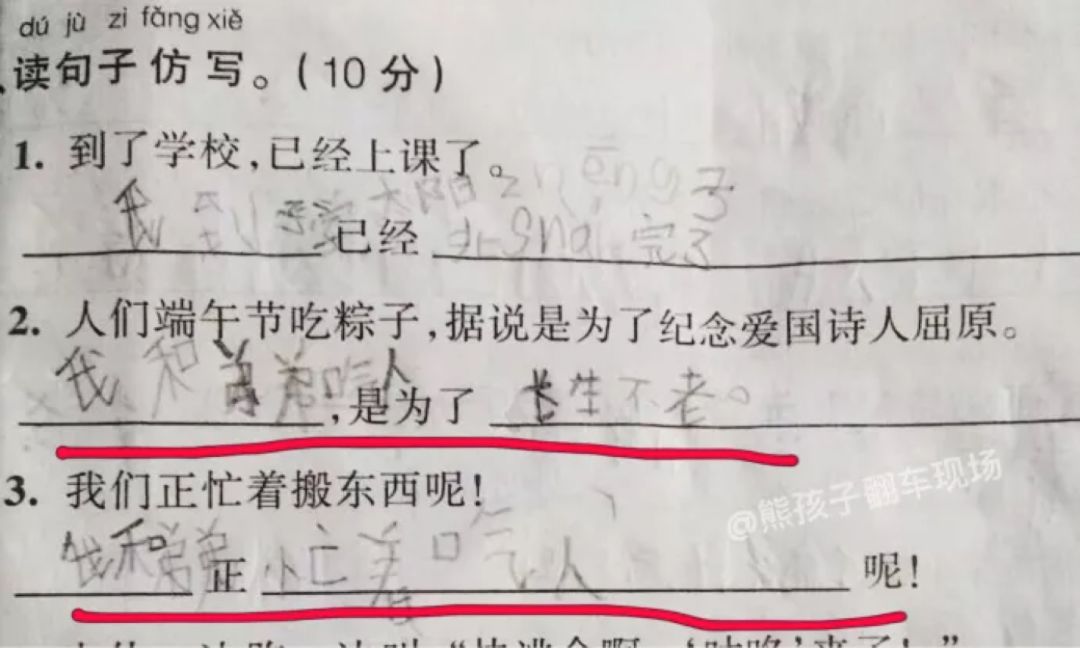 dú jù zi fǎng xiě
读句子仿写。(10分)
1. 到了学校,已经上课了。
我到了学 已经 完了
2. 人们端午节吃粽子,据说是为了纪念爱国诗人屈原。
我和弟弟吃人,是为了长生不老。
3. 我们正忙着搬东西呢!
我和弟弟正忙着吃人呢!
@熊孩子翻车现场